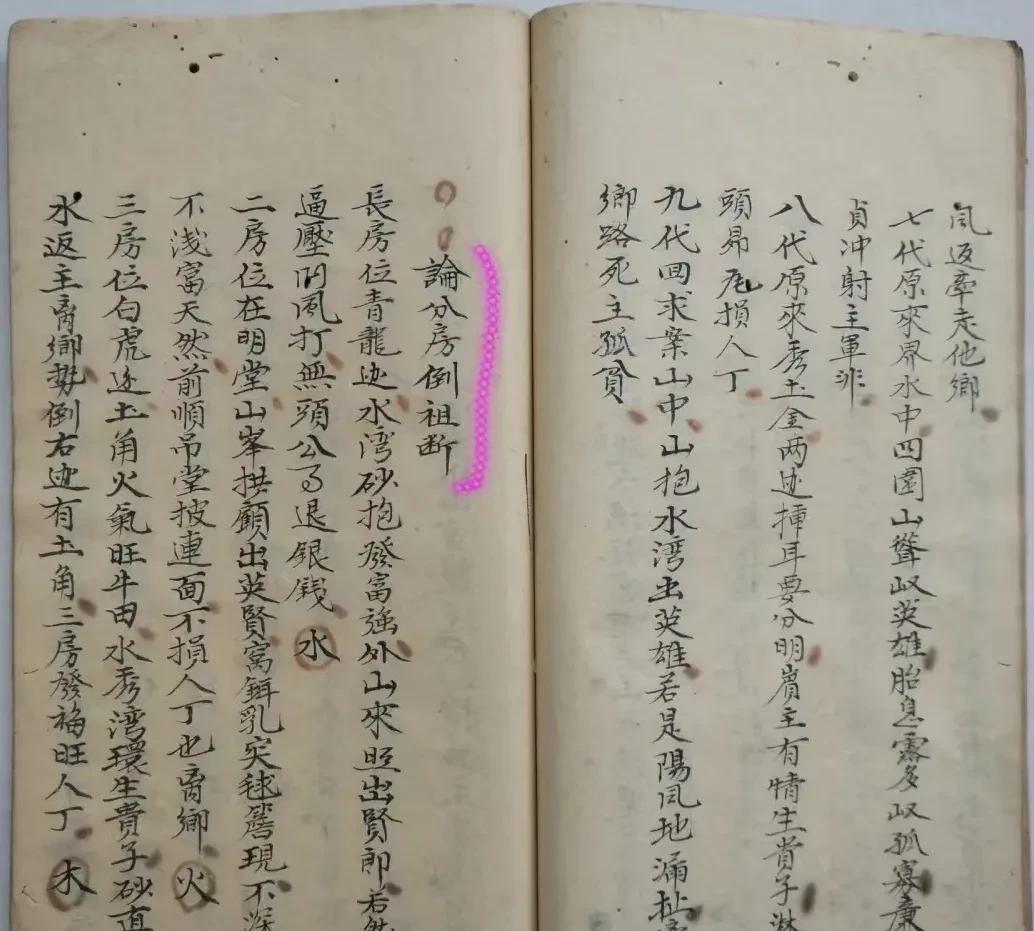 凬返牽走他鄉
七代原來界水中四園山聳収英雄胎息露多収孤寡廉
貞冲射主軍非
八代原來秀土金两边揷耳要分明賓主有情生貴子淋
頭昴尾損人丁
九代回求案山中山抱水湾出英雄若是陽凬地漏
鄉路死主孤貧
論分房倒祖断
長房位青龍边水湾砂抱發富強外山來照出賢郎若
逼壓凹凬打無頭公了退銀錢 水
二房位在明堂山峯拱顧出英賢窩鉗乳突毬簷現不深
不浅富天然前順吊堂披連面不損人丁也离鄉 火
三房位白虎边土角火氣旺牛田水秀湾環生貴子砂直
水返主离鄉勢倒右边有土角三房發福旺人丁 木